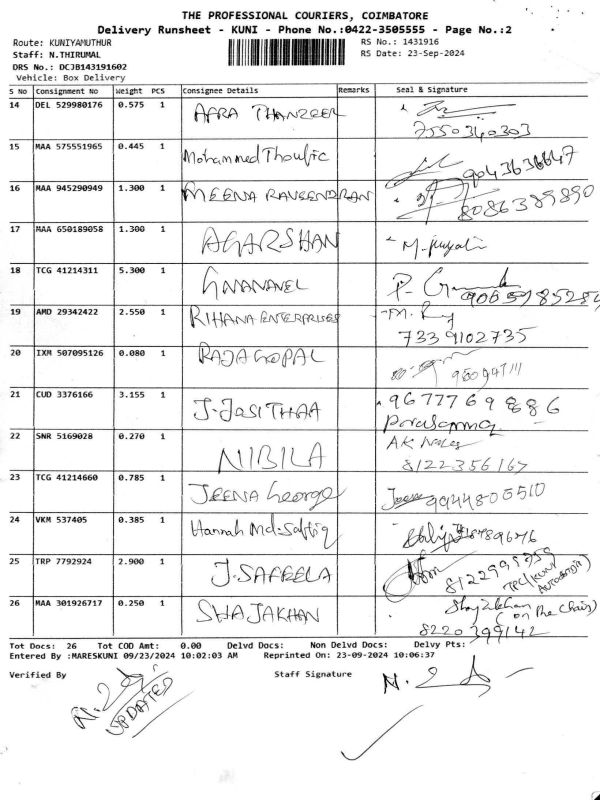 THE PROFESSIONAL COURIERS, COIMBATORE
Delivery Runsheet - KUNI - Phone No.:0422-3505555 - Page No.:2
Route: KUNIYAMUTHUR RS No.: 1431916
Staff: N.THIRUMAL RS Date: 23-Sep-2024
DRS No.: DCJB143191602
Vehicle: Box Delivery
S No Consignment No Weight PCS Consignee Details Remarks Seal & Signature
14 DEL 529980176 0.575 1 AFRA THANZEER
7550340303
15 MAA 575551965 0.445 1 Mohammed Thoufic
9043636647
16 MAA 945290949 1.300 1 MEENA RAVEENDRAN
8086389890
17 MAA 650189058 1.300 1 AGARSHAN
18 TCG 41214311 5.300 1 GNANAVEL
19 AMD 29342422 2.550 1 RIHANA ENTERPRISES
7339102735
20 IXM 507095126 0.080 1 RAJAGOPAL
21 CUD 3376166 3.155 1 J.JASITHAA 9677769886
22 SNR 5169028 0.270 1 NIBILA
8122356167
23 TCG 41214660 0.785 1 JEENA George 9944805510
24 VKM 537405 0.385 1 Hannah Md.
25 TRP 7792924 2.900 1 J.SAFEELA
TPC(KUNI
26 MAA 301926717 0.250 1 SHAJAKHAN Shajakhan
8220399142
Tot Docs: 26 Tot COD Amt: 0.00 Delvd Docs: Non Delvd Docs: Delvy Pts:
Entered By :MARESKUNI 09/23/2024 10:02:03 AM Reprinted On: 23-09-2024 10:06:37
Verified By Staff Signature
UPDATED